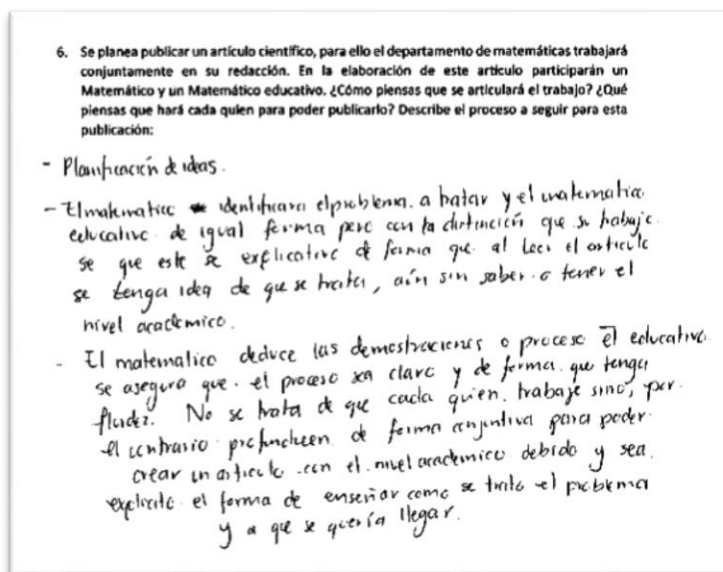 6. Se planea publicar un artículo científico, para ello el departamento de matemáticas trabajará
conjuntamente en su redacción. En la elaboración de este artículo participarán un
Matemático y un Matemático educativo. ¿Cómo piensas que se articulará el trabajo? ¿Qué
piensas que hará cada quien para poder publicarlo? Describe el proceso a seguir para esta
publicación:
- Planificación de ideas.
- El matematico identificara el problema. a tratar y el matematico
educativo de igual forma pero con la distinción que su trabajo
se que este explicativo de forma que al leer el articulo
se tenga idea de que se trata, aún sin saber o tener el
nivel academico.
- El matematico deduce las demostraciones o proceso el educativo
se asegura que el proceso sea claro y de forma que tenga
fluidez. No se trata de que cada quien trabaje sino, por
el contrario profundicen de forma conjuntiva para poder
crear un articulo con el nivel academico debido y sea
explicito el forma de enseñar como se trato el problema
y a que se quería llegar.